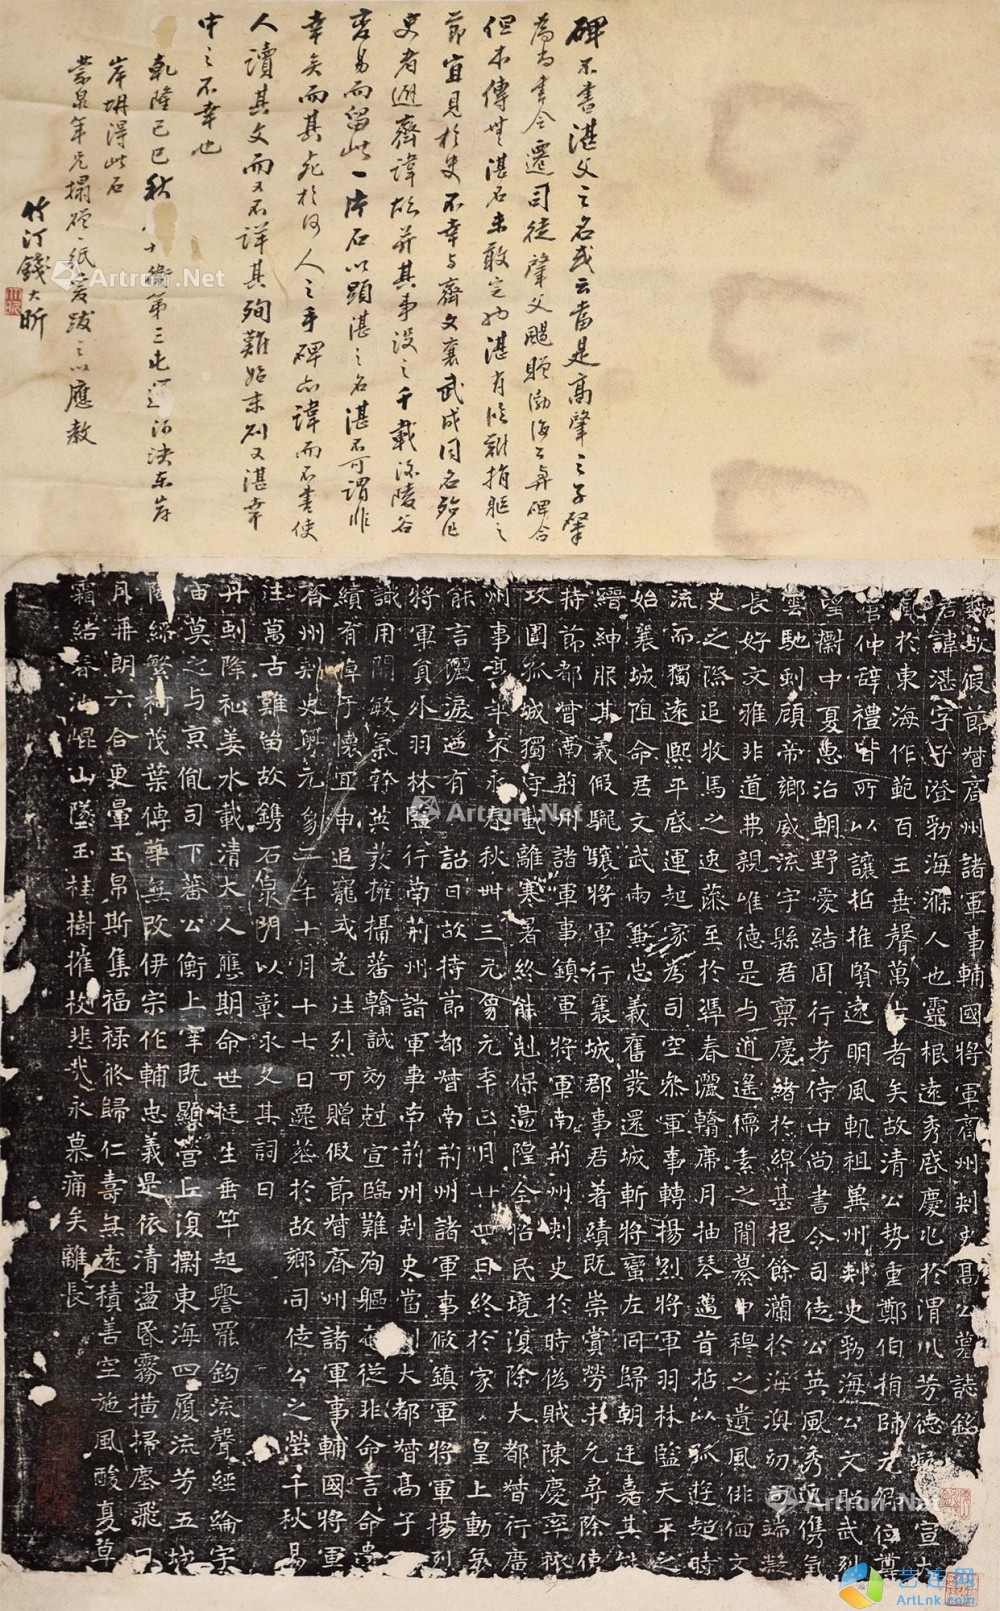 碑不書湛父之名或云當是高肇之子肇
為尚書令遷司徒肇父颺贈渤海公與碑合
但本傳無湛名未敢定也湛有臨難捐軀之
節宜見於史不幸与齊文襄武成同名殆作
史者避齊諱故并其事没之千載陵谷
變易而留此一片石以顯湛之名湛不可謂非
幸矣而其死於何人之手碑亦諱而不書使
人讀其文而又不詳其殉難始末則又湛幸
中之不幸也
乾隆己巳秋十衛第三屯運河決東岸
岸坍得此石
蒙泉年兄搨紙爰跋之以應教
竹汀錢大昕
魏故假節督齊州諸軍事輔國將軍齊州刺史高公墓誌銘
君諱湛字子澄勃海滌人也靈根遠秀啓慶兆於渭川芳德宣大
風於東海作範百王垂聲萬古者矣故清公勢重鄭伯捐師元卿位尊
管仲辭禮皆所以讓哲推賢遠明風軌祖冀州刺史勃海公文照武烈
望櫥中夏惠治朝野愛結周行考侍中尚書令司徒公英風秀逸儁氣
雲馳剋顧帝鄉威流宇縣君稟慶緒於綿基挹餘瀾於海澳幼尚端嶷
長好文雅非道弗親唯德是与逍遙儒素之間纂申穆之遺風俳佪文
史之際追牧馬之逸藻至於春灑翰席月抽琴邁昔哲以孤遊超時
流而獨遠熙平啓運起家為司空參軍事轉揚烈將軍羽林監天平之
始襄城阻命君文武兩兼忠義奮發還城斬將蠻左同歸朝廷嘉其能
縉紳服其義假驪驤將軍行襄城郡事君著績既崇賞勞未允尋除使
持節都督南荊州諸軍事鎮軍將軍南荊州刺史於時偽賊陳慶率旅
攻圍孤城獨守載離寒暑終能剋保邊隍全怡民境復除大都督行廣
州事享年卅三元象元年正月廿四日終於家皇上動哀
能言灑淚迺有詔曰故持節都督南荊州諸軍事假鎮軍將軍揚烈
將軍員外羽林監行南荊州諸軍事南荊州刺史當州大都督高子澄
識用開敏氣幹英敦擁攝蕃翰誠効剋宣臨難殉軀在從非命言念
績有悼于懷宜申追寵或光往烈可贈假節督齊州諸軍事輔國將軍
齊州刺史粤元象二年十月十七日遷葬於故鄉司徒公之塋千秋易
往萬古難留故鎸石泉門以彰永久其詞曰
丹剡降祉姜水載清大人應期命世挺生垂竿起譽罷鈞流聲經綸宇
宙莫之与京胤司下蕃公衡上宰既顯營丘復櫥東海四履流芳五城
陰綵繁柯茂葉傳華無改伊宗作輔忠義是依清盪氛霧橫掃塵飛日
月再朗六合更暈玉帛斯集福祿攸歸仁壽無遠積善空施風酸夏草
霜結春池崐山墜玉桂樹摧枝悲哉永慕痛矣離長
Artron.Net
Artron.Net
Artron.Net
艺连网
ArtLnk.com